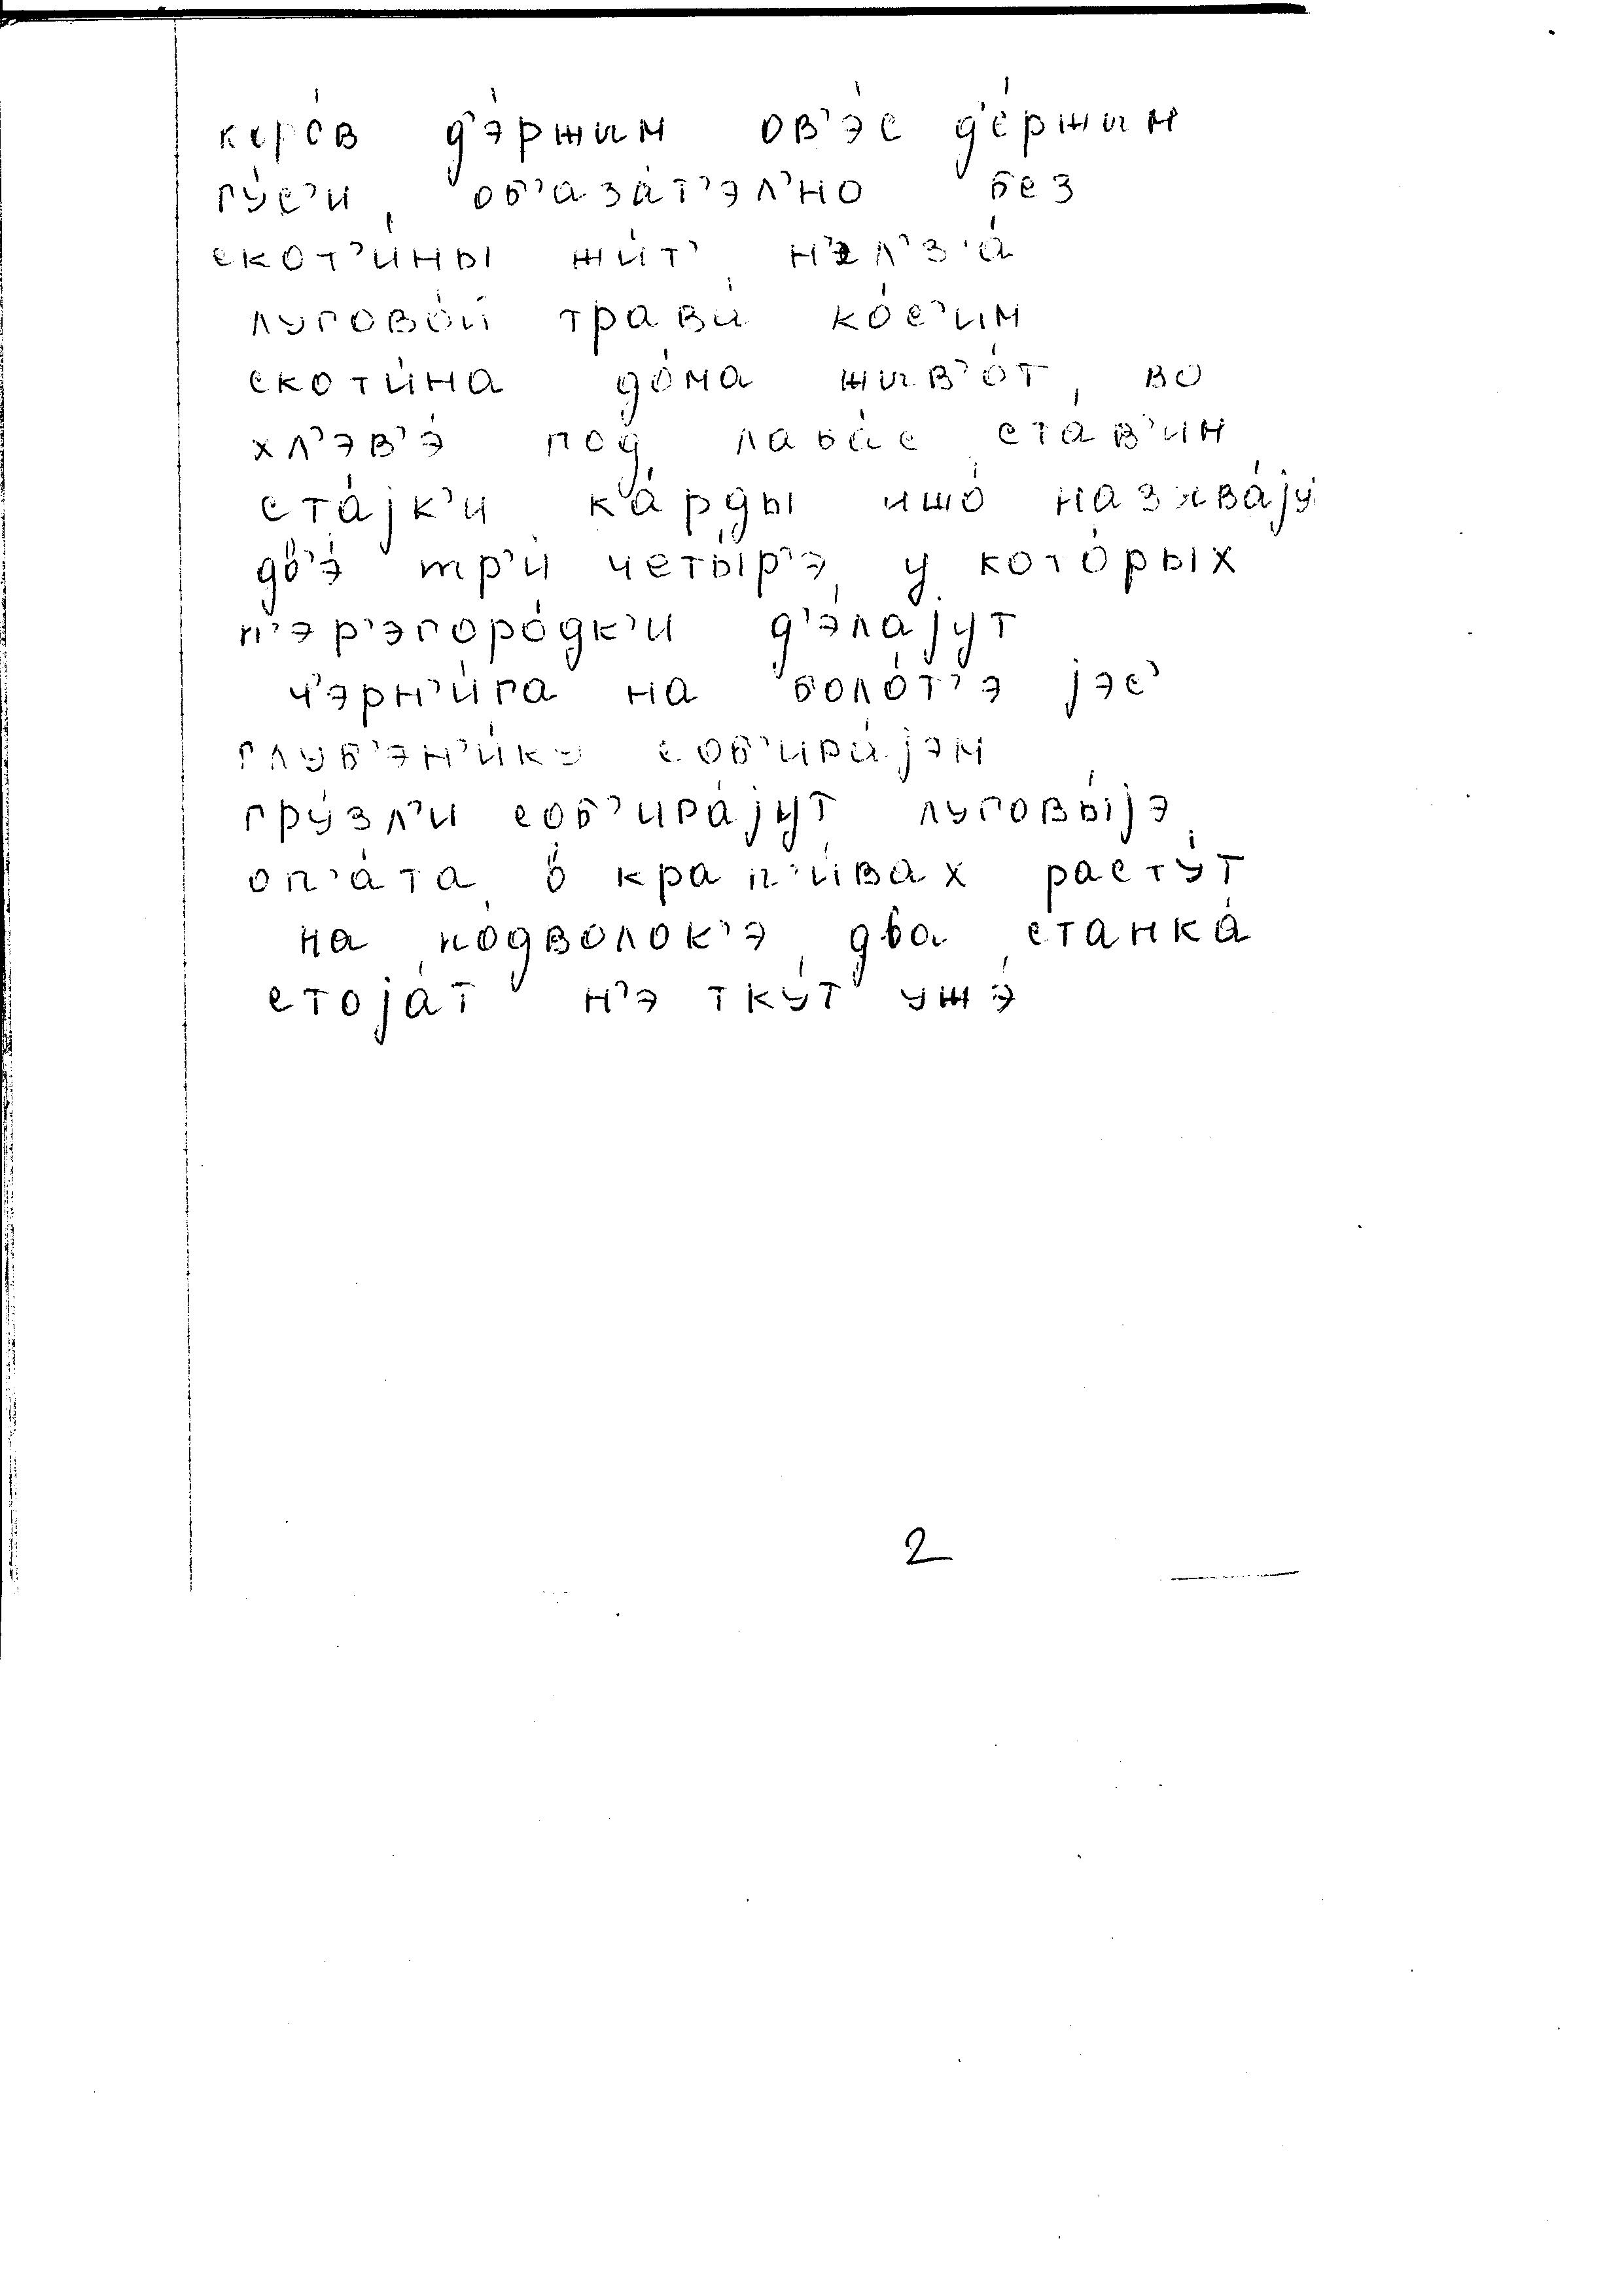 коро́в д'э́ржим ов'э́с де́ржим
гу́с'и, об'аза́т'эл'но без
скот'и́ны жи́т' н'эл'з'а́
лугово́й травы́ ко́с'им
скоти́на до́ма жыв'о́т, во
хл'эв'э́ под лаба́с ста́в'им
ста́јк'и ка́рды ишо́ называ́ју
дв'э́ тр'и́ четы́р'э, у кото́рых
п'эр'эгоро́дк'и д'э́лајут
ч'эрн'и́га на боло́т'э јэс'
глуб'эн'и́ку соб'ира́јэм
гру́зл'и соб'ира́јут луговы́јэ
оп'а́та в крап'и́вах расту́т
на по́дволок'э два станка́
стоја́т н'э тку́т ужэ́
2